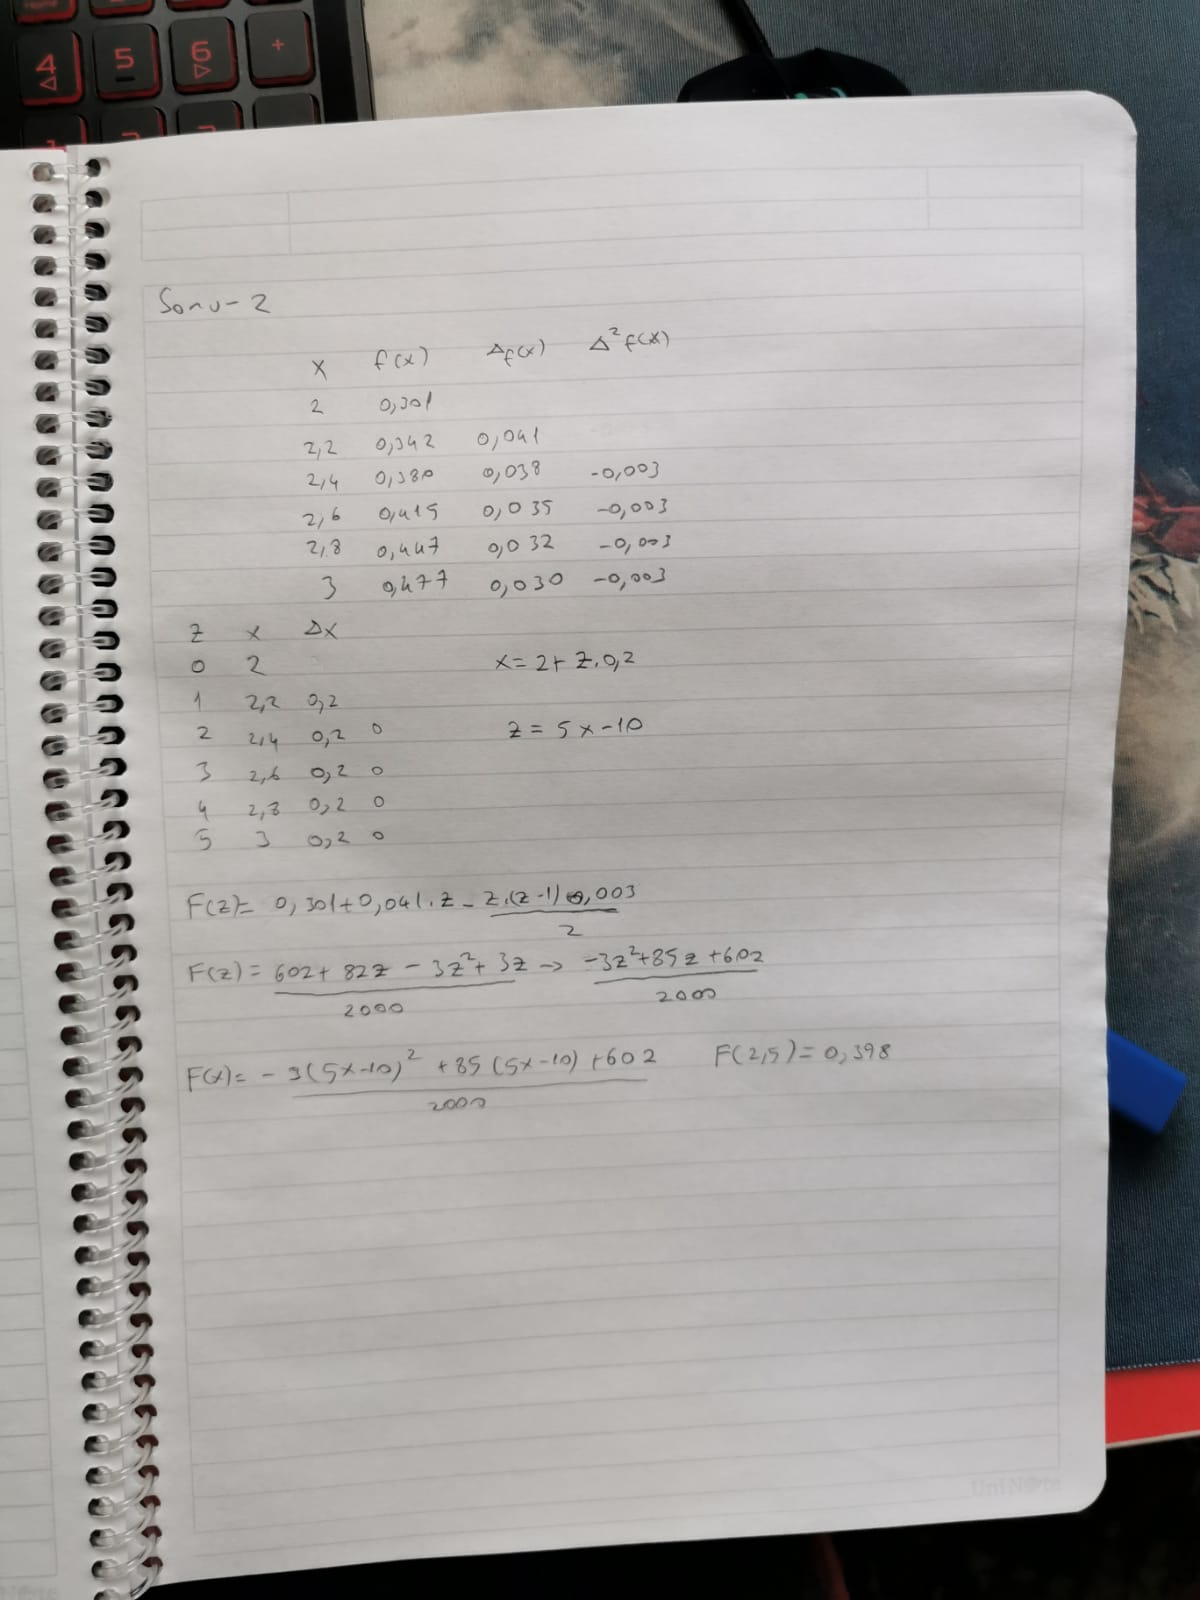 4 5 6 +
Soru-2
x f(x) Δf(x) Δ²f(x)
2 0,301
2,2 0,342 0,041
2,4 0,380 0,038 -0,003
2,6 0,415 0,035 -0,003
2,8 0,447 0,032 -0,003
3 0,477 0,030 -0,003
z x Δx
0 2 x=2+z.0,2
1 2,2 0,2
2 2,4 0,2 0 z=5x-10
3 2,6 0,2 0
4 2,8 0,2 0
5 3 0,2 0
F(z)= 0,301+0,041.z - z.(z-1) 0,003
2
F(z)= 602+82z-3z²+3z → -3z²+85z+602
2000 2000
F(x)= -3(5x-10)²+85(5x-10)+602 F(2,5)=0,398
2000
UniNote